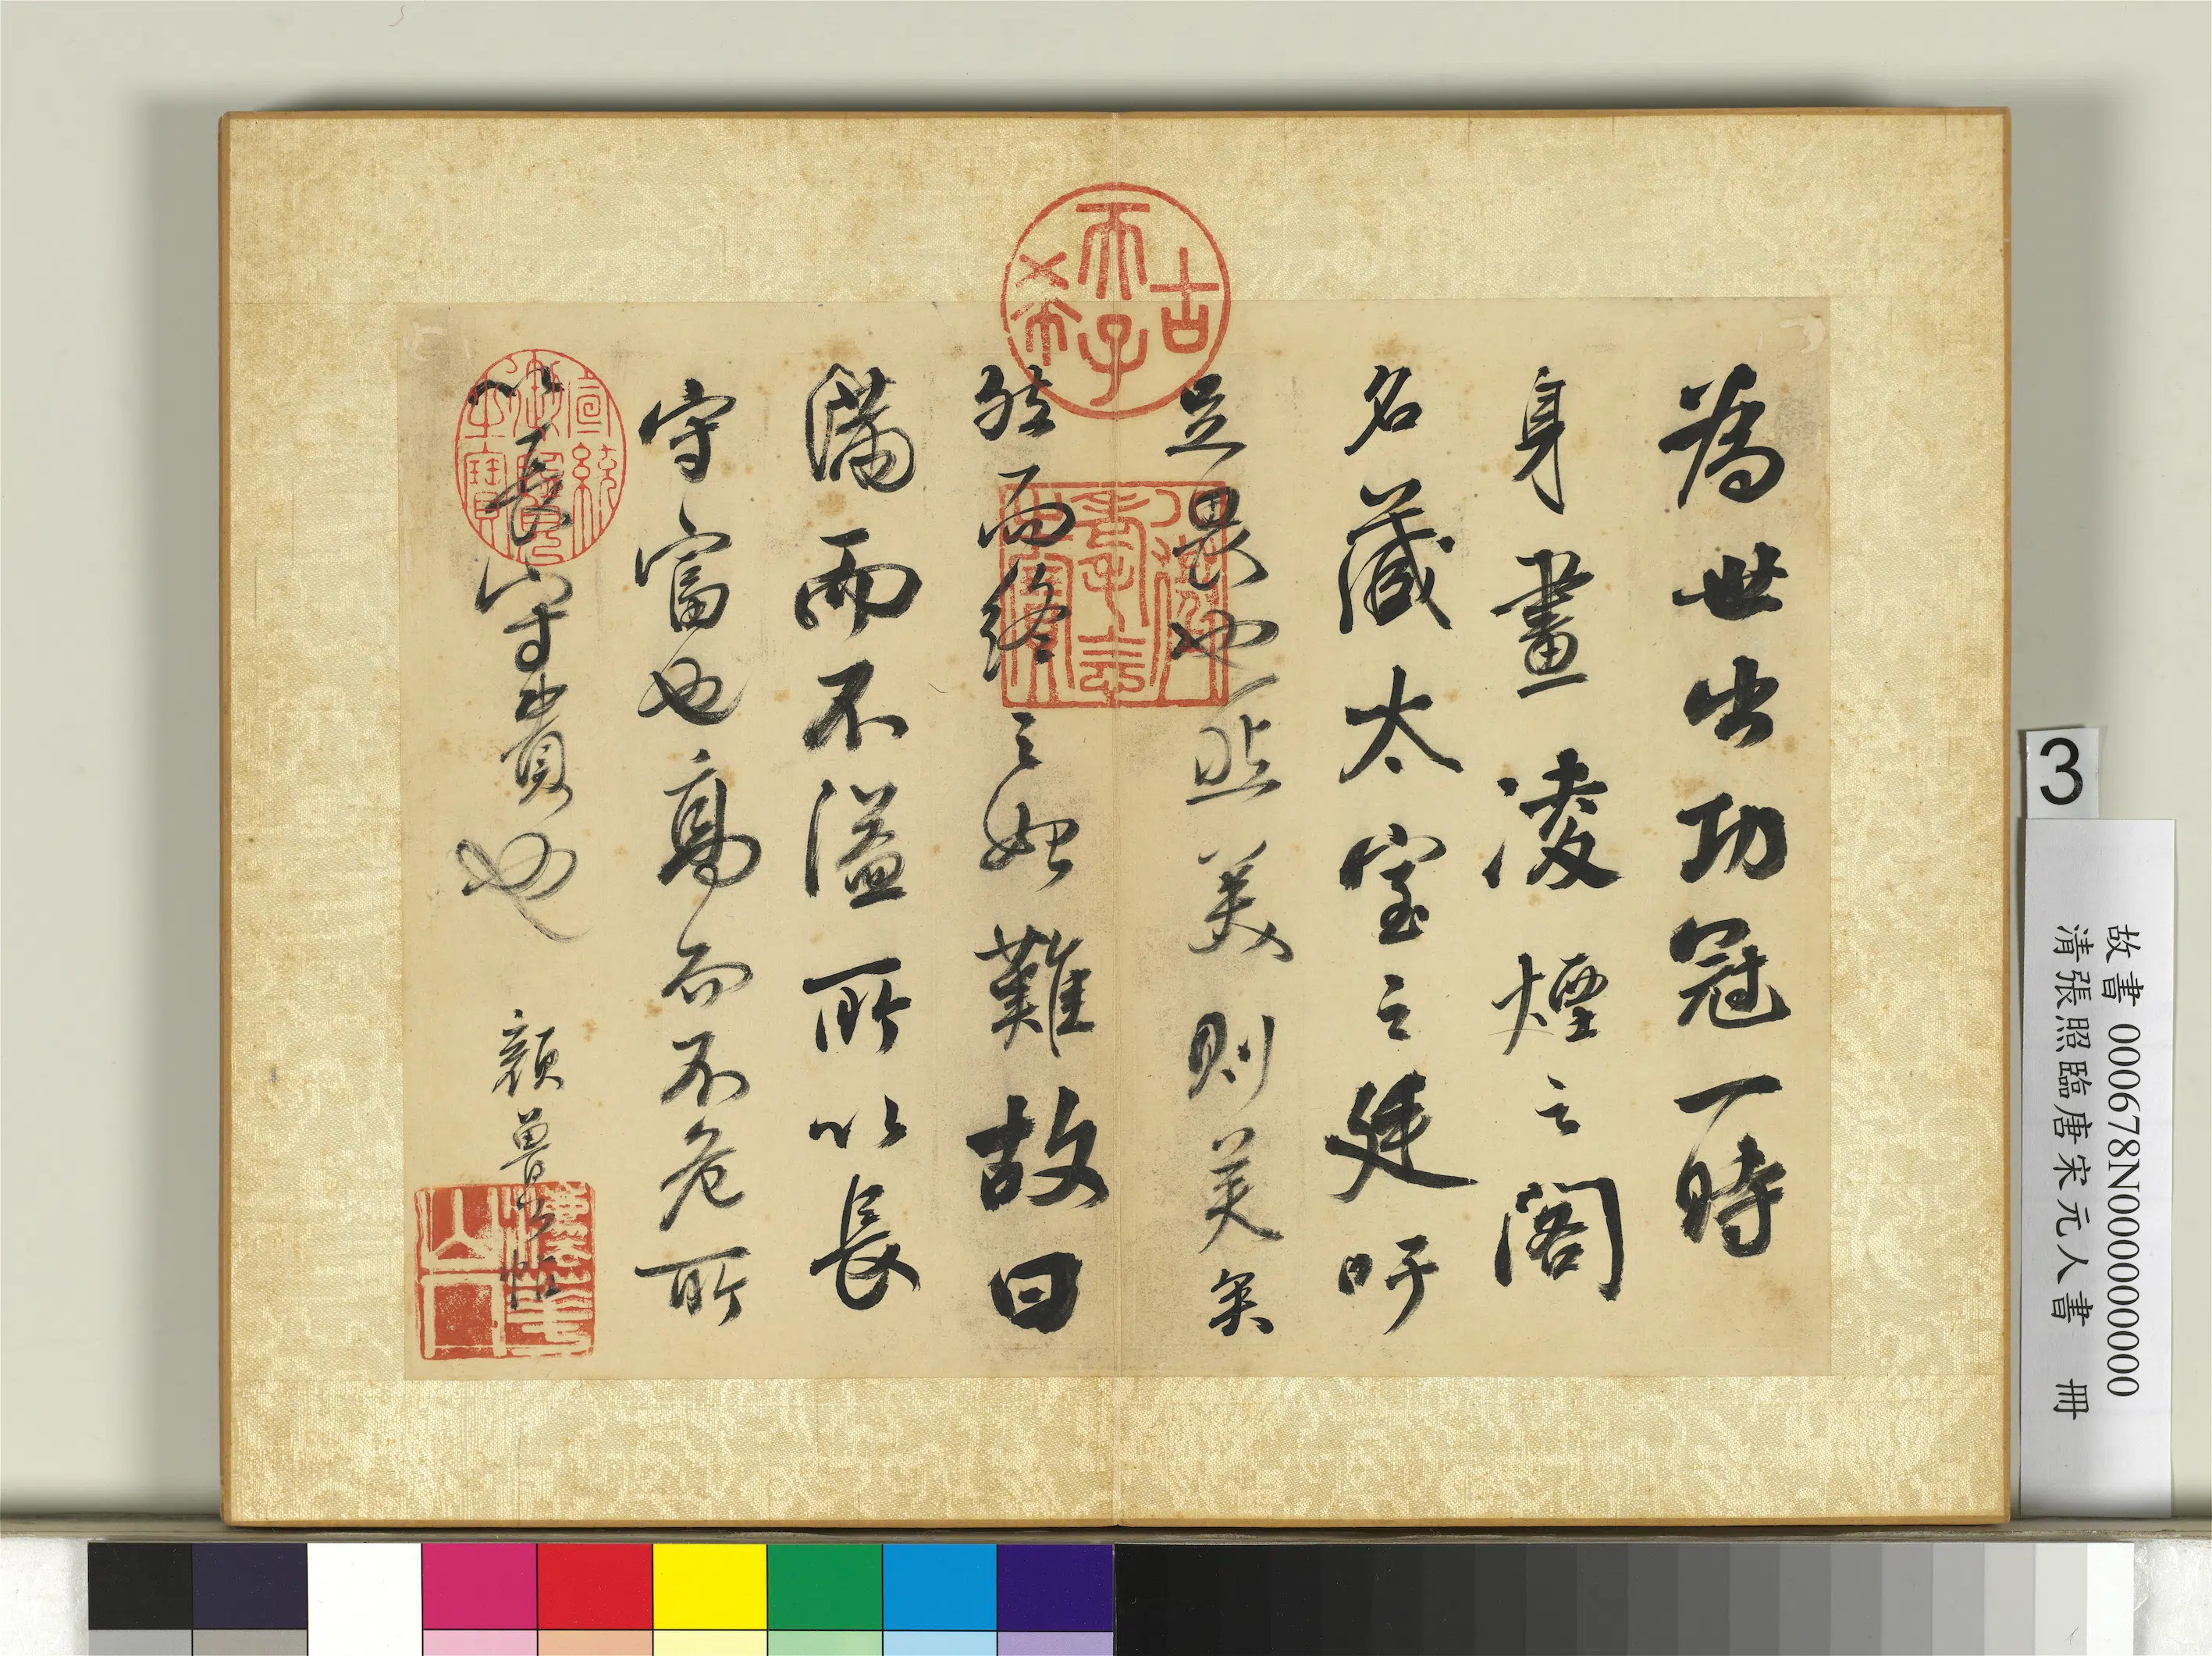 為世出功冠一時
身畫凌煙之閣
名藏太室之廷吁
足畏也然美則美矣
然而終之始難故曰
滿而不溢所以長
守富也高而不危所
以長守貴也
顏魯公帖
古希天子
宣統御覽之寶
3
故書 000678N000000000
清張照臨唐宋元人書 冊